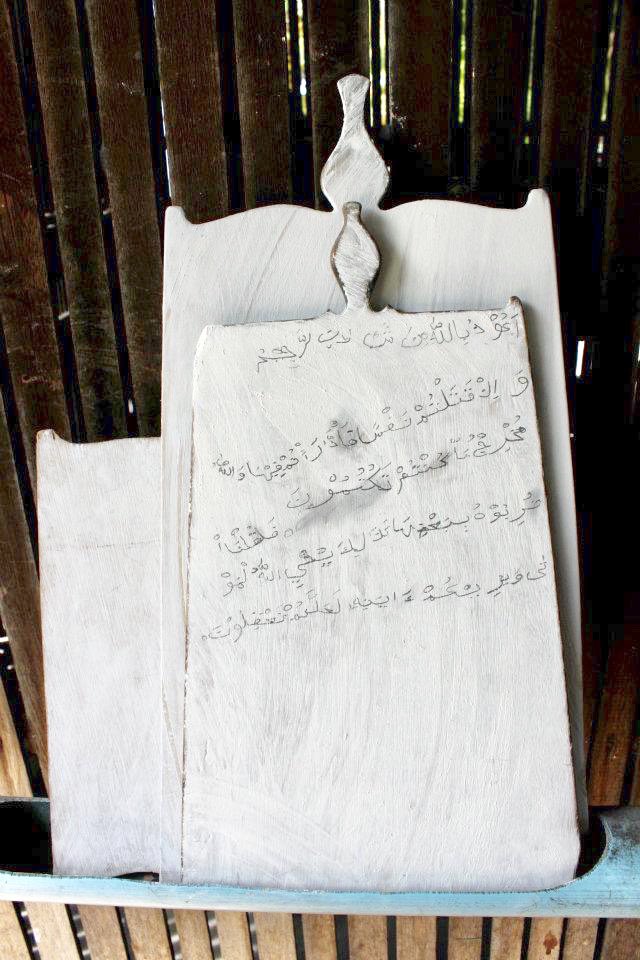 أَعُوْ ذُ بِاللهِ مِنَ
وَ اِذْ قَتَلْتُمْ نَفْسًا فَادَّارَأْتُمْ فِيْهَا وَاللهُ
مُخْرِجٌ مَّا كُنْتُمْ تَكْتُمُوْنَ
فَقُلْنَا ا
ضْرِبُوْهُ بِبَعْضِهَا كَذَلِكَ يُحْيِي اللهُ لْمَوْ
تَى وَيُرِيكُمْ ءَايَتِهِ لَعَلَّكُمْ تَعْقِلُوْنَ